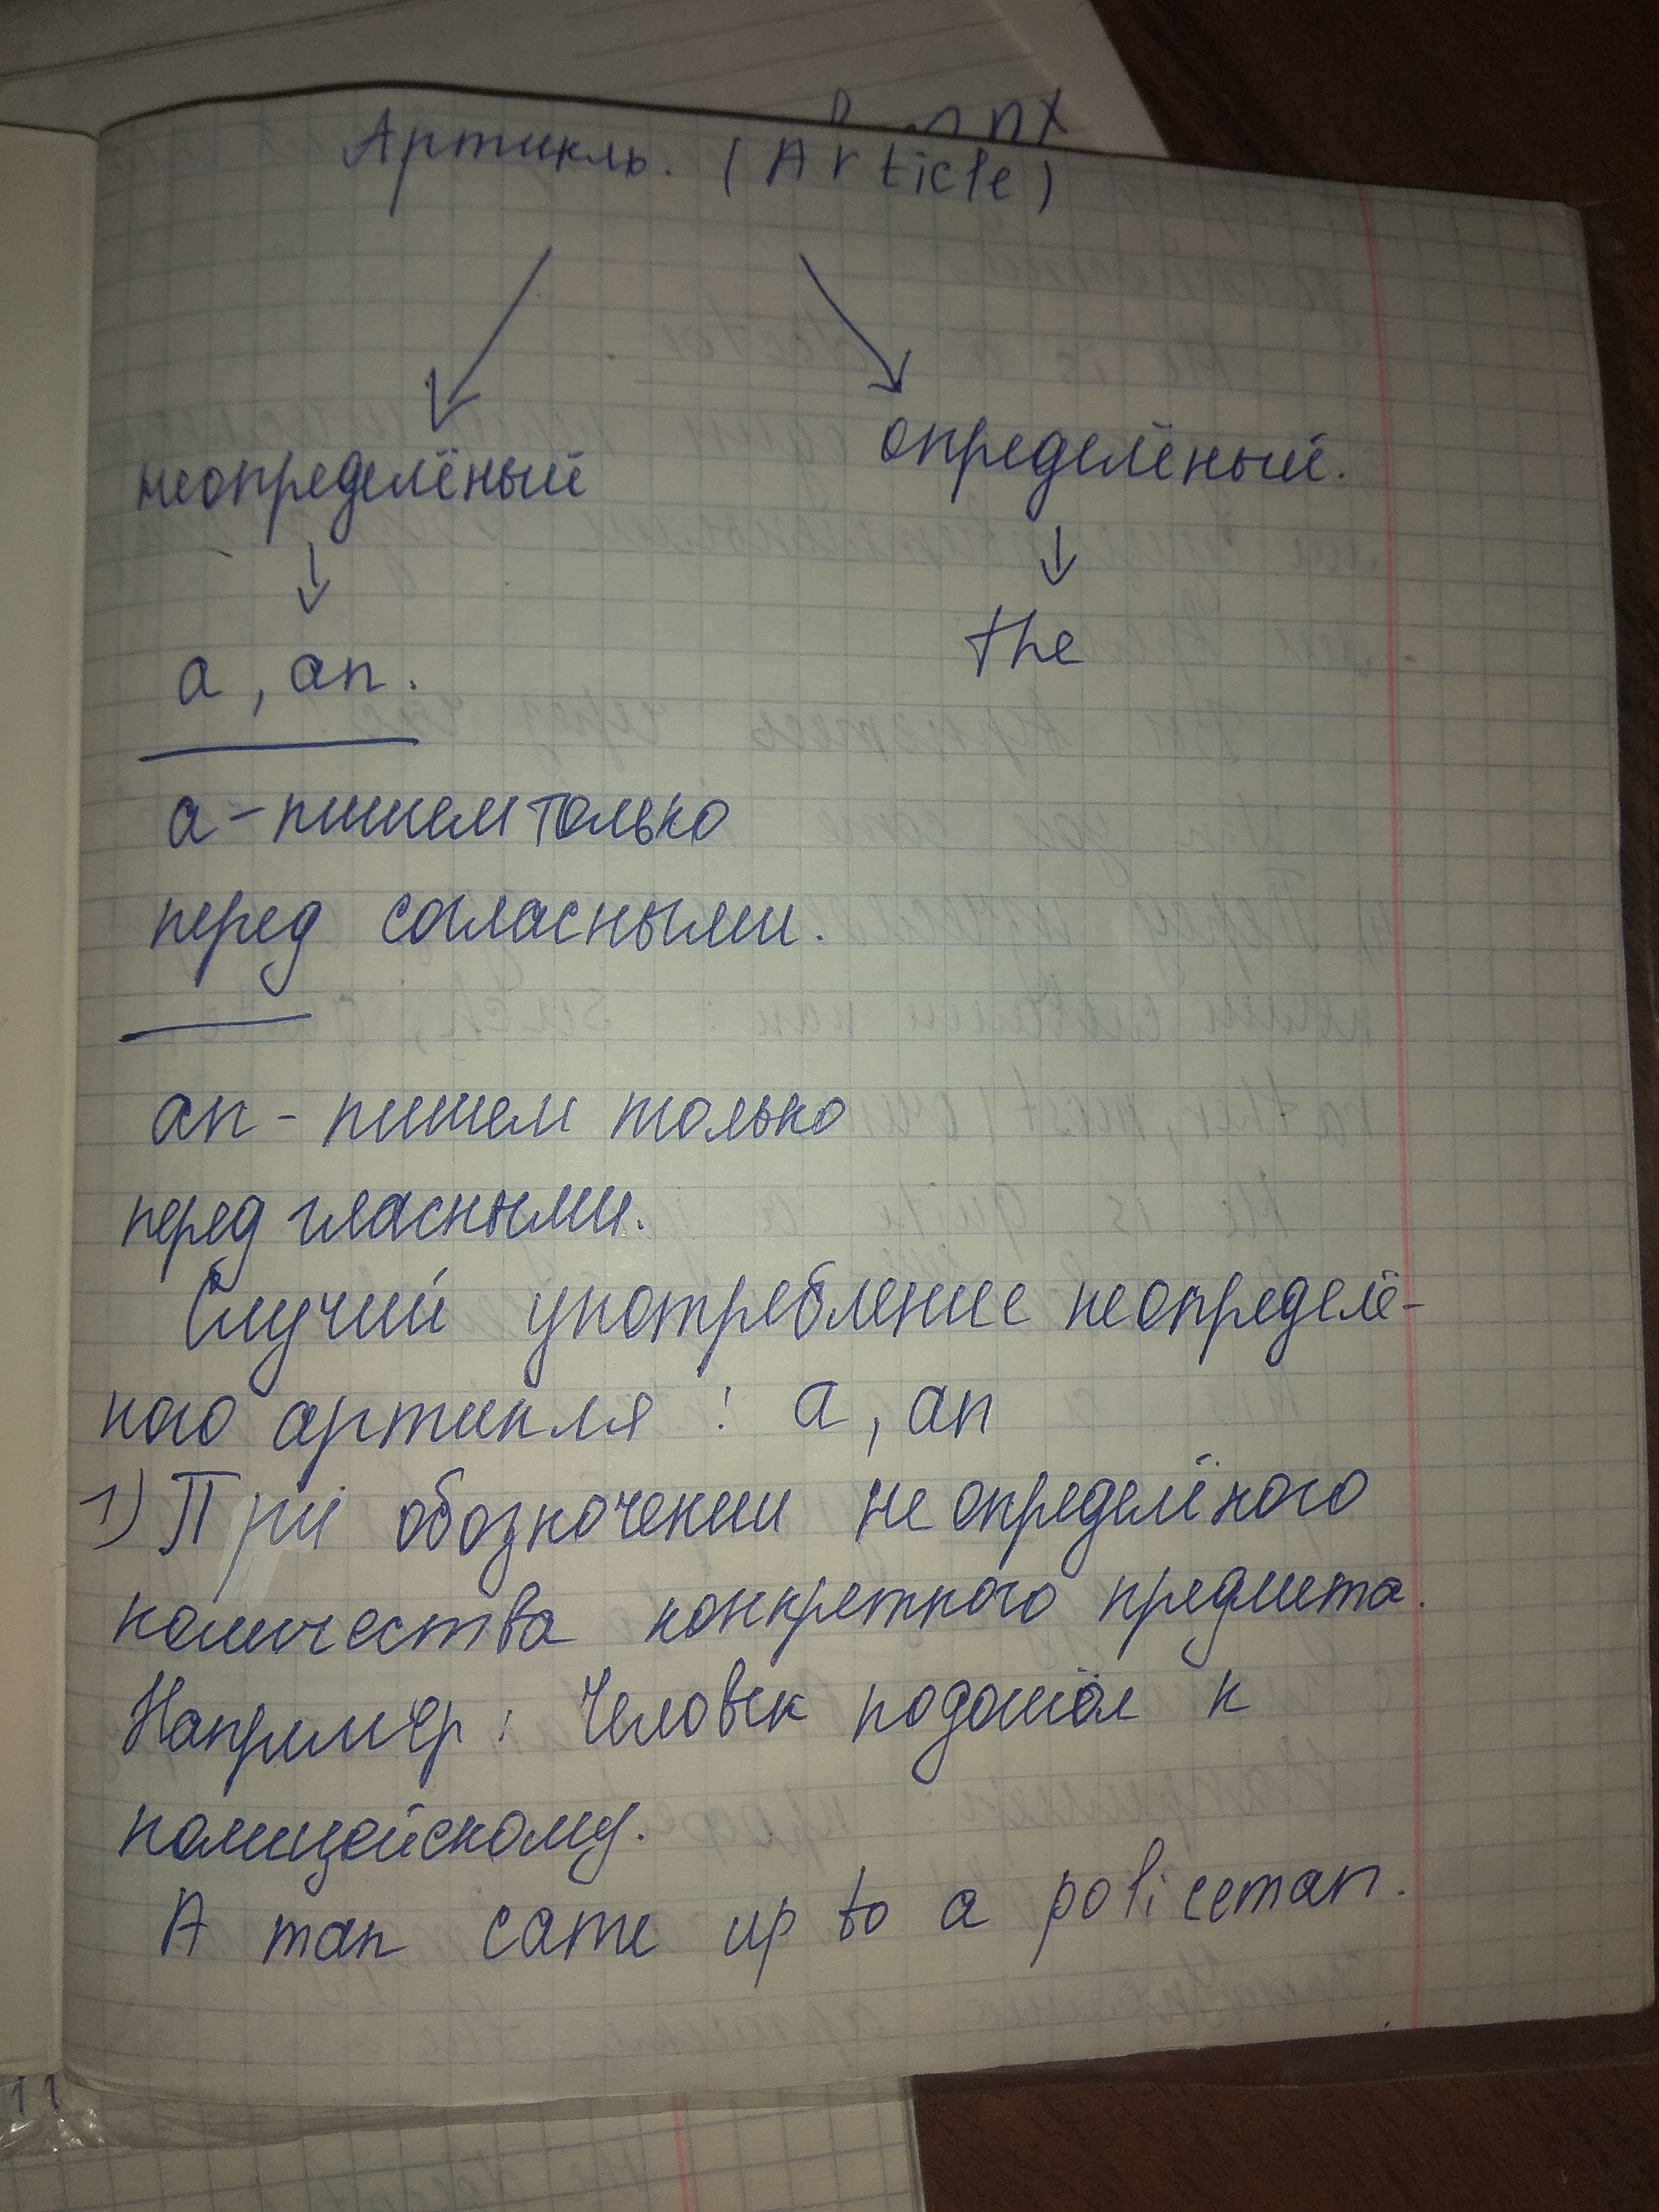 Артикль. (Article)
неопределёный определёный.
a, an. the
а - пишем только
перед согласными.
an - пишем только
перед гласными.
Случий употребление неопределё-
ного артикля : a, an
1) При обозночении неопределёного
количества конкретного предмета.
Например: Человек подошёл к
полицейскому.
A man came up to a policeman.
11